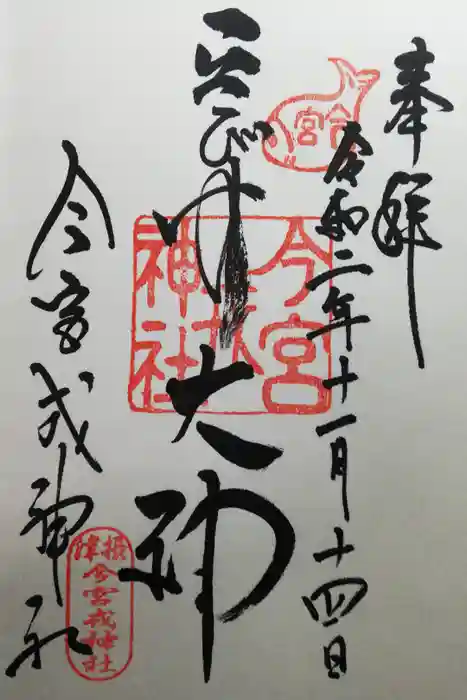 奉拝
令和二年十一月十四日
今宮
ゑびす大神
今宮戎神社
今宮戎神社
摂津
今宮戎神社